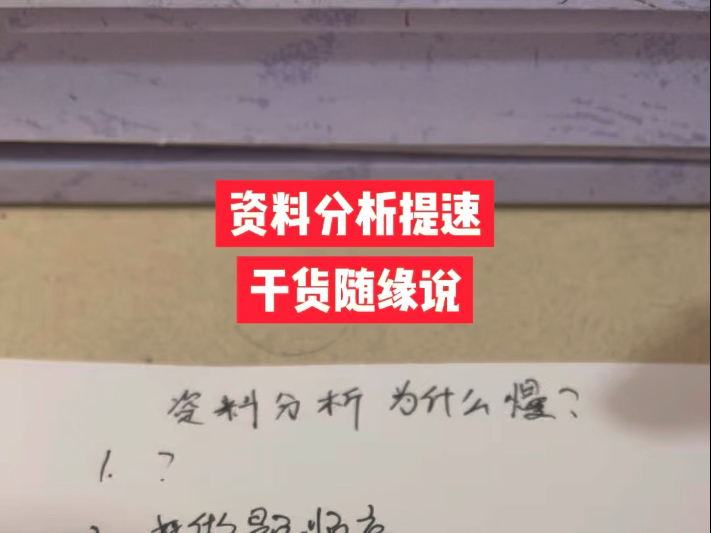 资料分析提速
干货随缘说
资料分析为什么慢?
1. ?